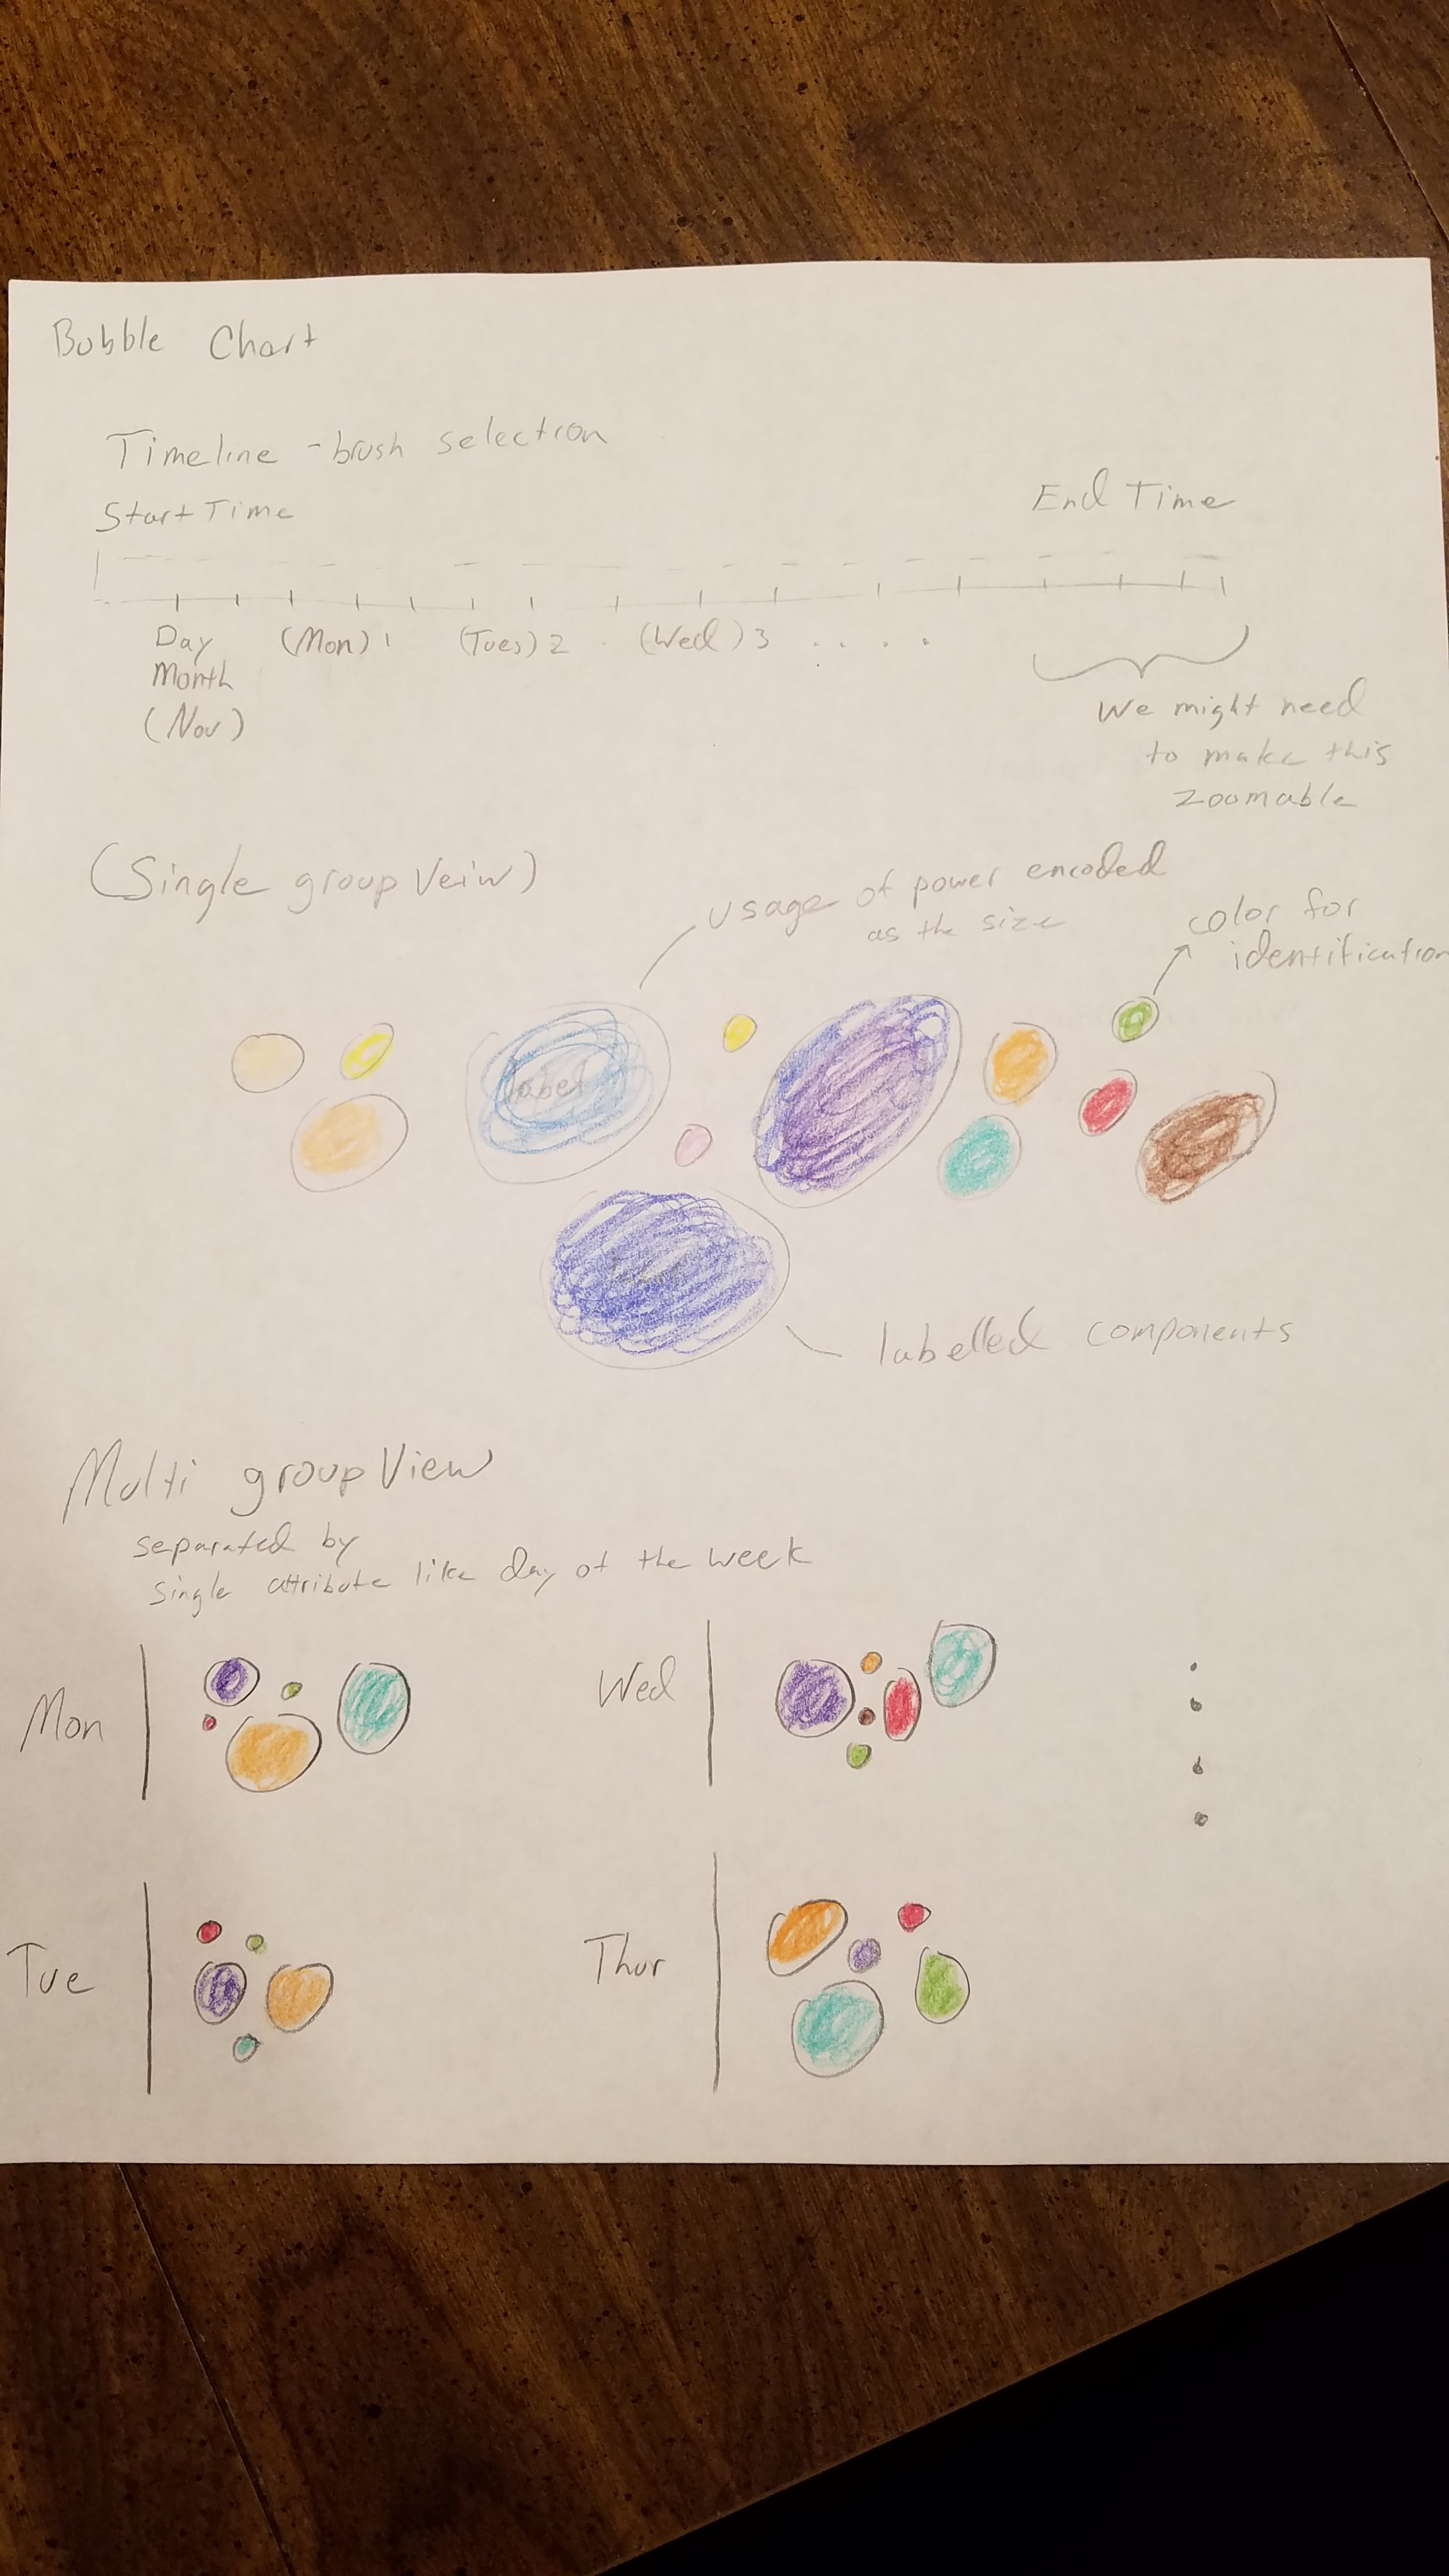 Bubble Chart
Timeline - brush selection
Start Time
End Time
Day (Mon) 1 (Tues) 2 . (Wed) 3 . . . .
Month
(Nov)
We might need
to make this
zoomable
(Single group Veiw)
usage of power encoded
as the size
color for
identification
label
labelled components
Multi group View
separated by
single attribute like day of the week
Mon
Wed
Tue
Thur